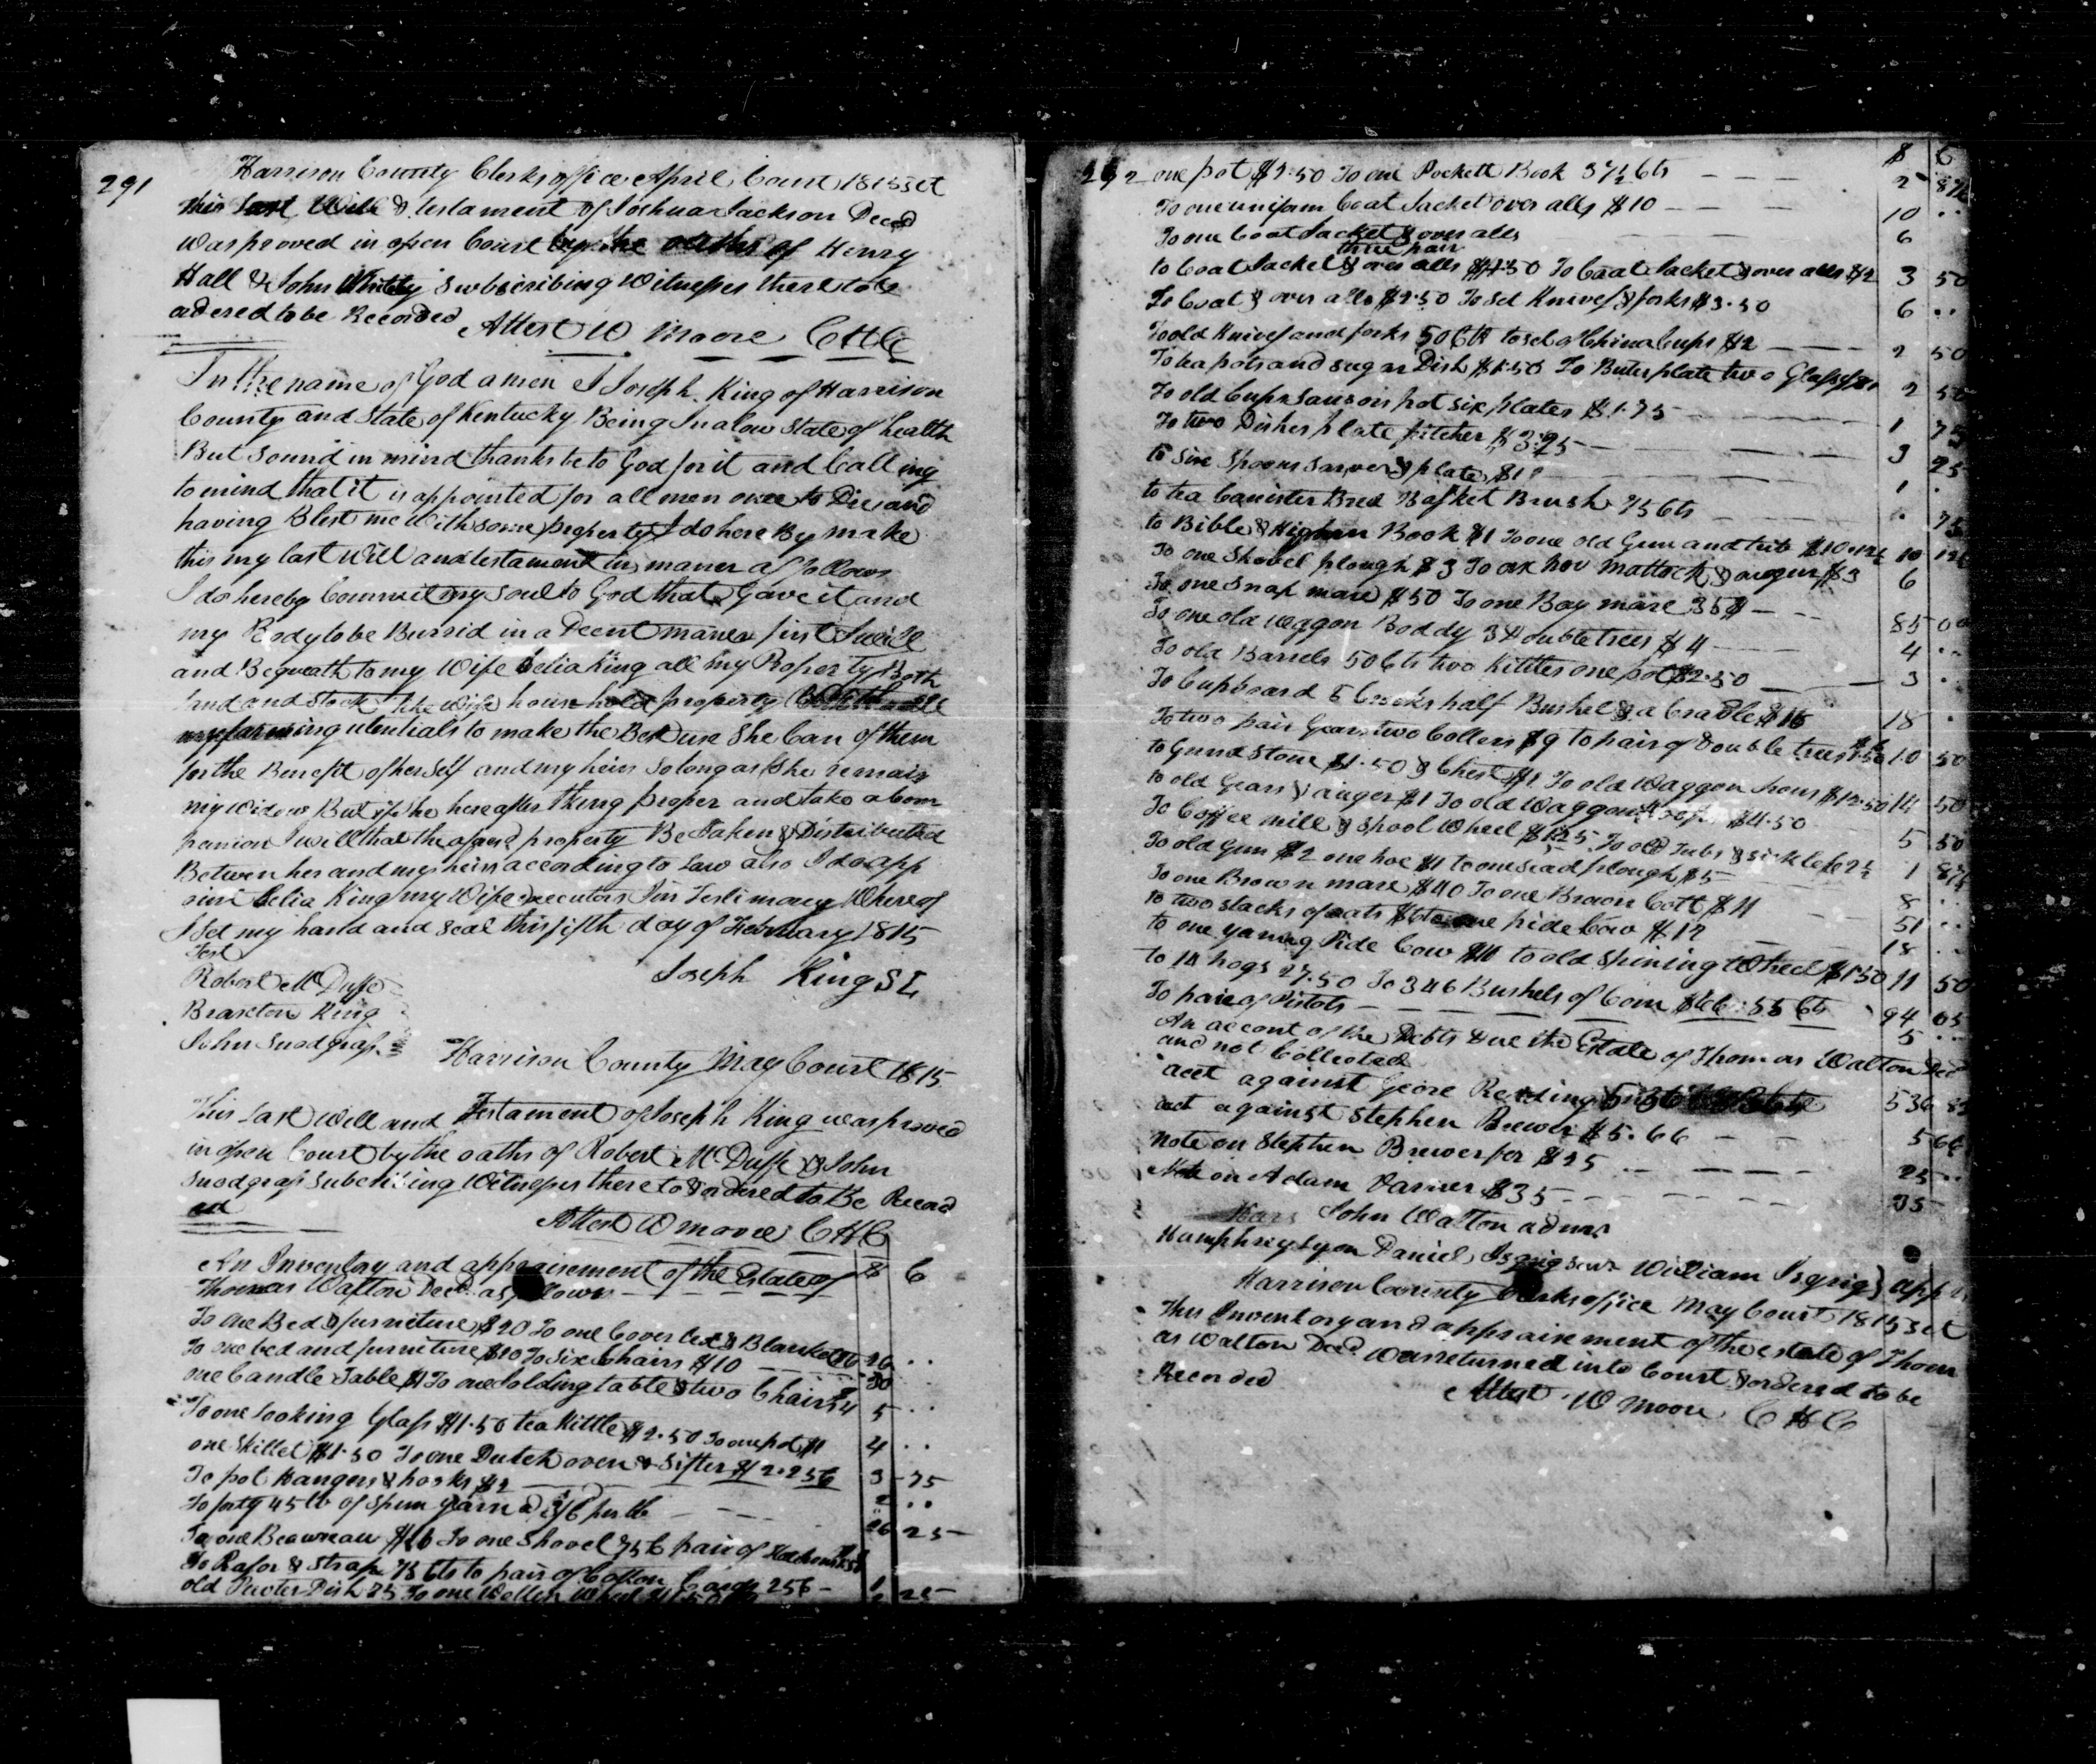 291
Harrison County Clerks office April Court 1815 Sct
this Last Will & testament of Joshua Jackson Decd
was proved in open Court by the oaths of Henry
Hall & John Whitty subscribing Witnesses thereto &
ordered to be Recorded
Attest W Moore CHC
In the name of God amen I Joseph King of Harrison
County and State of Kentucky Being In a low State of health
But Sound in mind thanks be to God for it and Calling
to mind that it is appointed for all men once to Die and
having Blest me With some property I do here By make
this my last Will and testament in maner as follows
I do hereby Commit my soul to God that Gave it and
my Body to be Burrid in a Decent maner first I will
and Bequeath to my Wife Celia King all my Property Both
land and stock like wife house hold property With all
my farming utentials to make the Best use She Can of them
for the Benefit of herself and my heirs so long as She remain
my Widow But if she hereafter thing proper and take a Com
panion I will that the aforesd property Be Taken & Distributed
Betwen her and my heirs according to Law also I do app
oint Celia King my Wife executors In Testimony Where of
I Set my hand and seal this fifth day of February 1815
Test
Joseph King SL
Robert McDuffe
Braxton King
John Snodgrass
Harrison County May Court 1815
This Last Will and Testament of Joseph King was proved
in open Court by the oaths of Robert McDuffe & John
Snodgrass subcribing Witnesses there to & ordered to Be Record
ed
Attest W moore CHC
An Inventory and appraisement of the Estate of $ C
Thomas Walton Decd as follows
To one Bed & furniture $20 To one Coverled & Blanket $6 26 ..
To one bed and furniture $10 To six Chairs $10 20
one Candle Table $1 To one folding table & two Chairs $4 5 ..
To one Looking Glass $1.50 tea Kittle $2.50 To one pot $1 4 ..
one Skillet $1.50 To one Dutch oven & Sifter $2.25 C 3 75
To pot Hangers & hooks $2 2 ..
To forty 45 lb of Spun yarn a 3/6 per lb 26 25
To one Beawreau $16 To one Shovel 75 C pair of
To Rasor & Strap 75 Cts to pair of Cotton Cards 25 C 1
old Pewter Dish 75 To one Wollen Wheel $1.50 25
292 $ C
one pot $2.50 To one Pockett Book 37½ Cts 2 87½
To one uniform Coat Jacket over alls $10 10 ..
To one Coat Jacket & over alls 6
three pair
to Coat Jacket & over alls $1.50 To Coat Jacket & over alls $2 3 50
To Coat & over alls $2.50 To set Knives & forks $3.50 6 ..
To old Knives and forks 50 Cts to set of China Cups $2 2 50
To tea pots and sugar Dish $1.50 To Buter plate two Glasses $1 2 50
To old Cups Sausors pot six plates $1.75 1 75
To two Dishes plate pitcher $3.25 3 25
to six Spoons sarver & plate $1 1 .
to tea Canister Bred Basket Brush 75 Cts . 75
to Bible & Book $1 To one old Gun and trib $10.12½ 10 12½
To one Shovel plough $3 To ax hoe Mattock & auger $3 6
To one Snap mare $50 To one Bay mare 35$ 85 00
To one old waggon Boddy 3 double trees $4 4 ..
To old Barrels 50 Cts two Kittles one pot $2.50 3 ..
To Cupboard 5 Crocks half Bushel & a Cradle 18 .
To two pair Gears two Collers $9 to pair of double trees $1.50 10 50
to Grind stone $1.50 & Chest $1 To old Waggon Irons $12.50 14 50
to old Gears & auger $1 To old Waggon $4.50 5 50
To Coffee mill & Spool Wheel $1.25 To old Tubs & sickle 62½ 1 87½
To old Gun $2 one hoe $1 to one sead plough $5 8 ..
To one Brown mare $40 To one Brown Colt $11 51 ..
to two stacks of oats $6 to one pide Cow $12 18 ..
to one young Pide Cow $10 to old Spinning Wheel $1.50 11 50
to 14 hogs 27.50 To 346 Bushels of Corn $66.55 Cts 94 05
To pair of Pistols 5 ..
An accont of the Debts due the Estate of Thomas Walton Decd
and not Collected
acct against Geore Reading 536
act against Stephen Brewer $5.66 5 66
note on Stephen Brewer for $25 25 ..
Note on Adam Varner $35 35
John Walton admr
Humphrey Lyon Daniel Isgrig senr William Isgrig } app
Harrison County Clerks office May Court 1815 Sct
This Inventory and appraisement of the estate of Thom
as Walton Decd was returned into Court & ordered to be
Recorded
Attest W Moore CHC